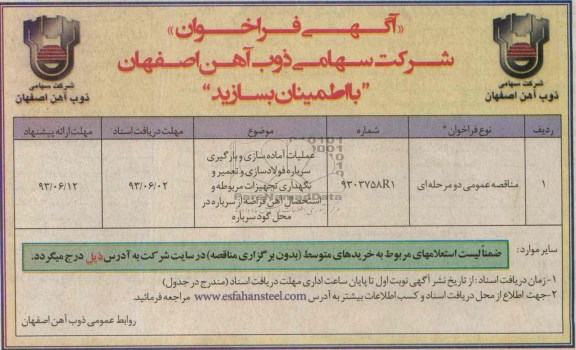 «آگهی فراخوان»
شرکت سهامی ذوب آهن اصفهان
"با اطمینان بسازید"
شرکت سهامی
ذوب آهن اصفهان
شرکت سهامی
ذوب آهن اصفهان
ردیف نوع فراخوان * شماره موضوع مهلت دریافت اسناد مهلت ارائه پیشنهاد
۱ مناقصه عمومی دو مرحله ای ۹۳۰۳۷۵۸R۱ عملیات آماده سازی و بارگیری ۹۳/۰۶/۰۲ ۹۳/۰۶/۱۲
سرباره فولادسازی و تعمیر و
نگهداری تجهیزات مربوطه و
استحصال آهن قراضه از سرباره در
محل گود سرباره
سایر موارد: ضمناً لیست استعلامهای مربوط به خریدهای متوسط (بدون برگزاری مناقصه) در سایت شرکت به آدرس ذیل درج میگردد.
۱- زمان دریافت اسناد: از تاریخ نشر آگهی نوبت اول تا پایان ساعت اداری مهلت دریافت اسناد (مندرج در جدول)
۲- جهت اطلاع از محل دریافت اسناد و کسب اطلاعات بیشتر به آدرس www.esfahansteel.com مراجعه فرمائید.
روابط عمومی ذوب آهن اصفهان